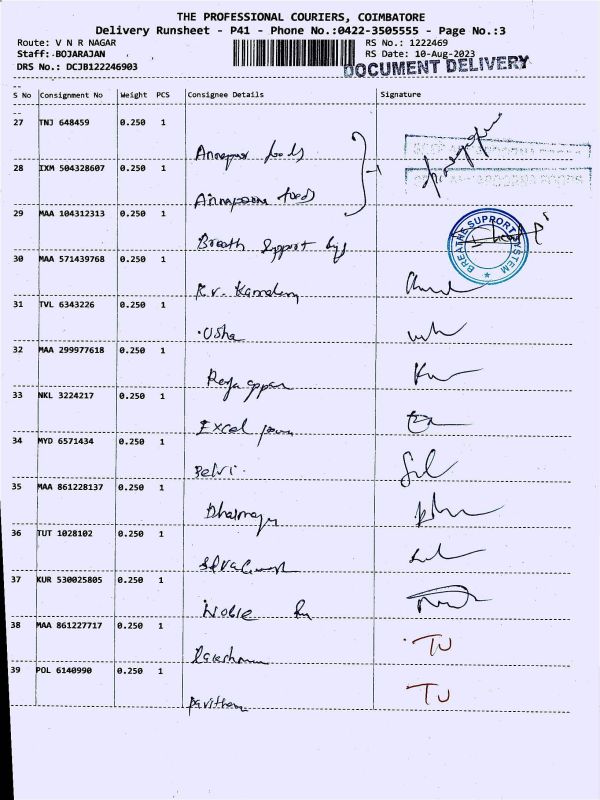 THE PROFESSIONAL COURIERS, COIMBATORE
Delivery Runsheet - P41 - Phone No.:0422-3505555 - Page No.:3
Route: V N R NAGAR RS No.: 1222469
Staff: BOJARAJAN RS Date: 10-Aug-2023
DRS No.: DCJB122246903 DOCUMENT DELIVERY
S No Consignment No Weight PCS Consignee Details Signature
27 TNJ 648459 0.250 1
Annapur foods
28 IXM 504328607 0.250 1
Annapoorna foods
29 MAA 104312313 0.250 1
Breath Support BREATHE SUPPORT SYSTEM
30 MAA 571439768 0.250 1
R.V.
31 TVL 6343226 0.250 1
Usha
32 MAA 299977618 0.250 1
33 NKL 3224217 0.250 1
Excel
34 MYD 6571434 0.250 1
Selvi
35 MAA 861228137 0.250 1
36 TUT 1028102 0.250 1
37 KUR 530025805 0.250 1
Noble
38 MAA 861227717 0.250 1
TU
39 POL 6140990 0.250 1
TU